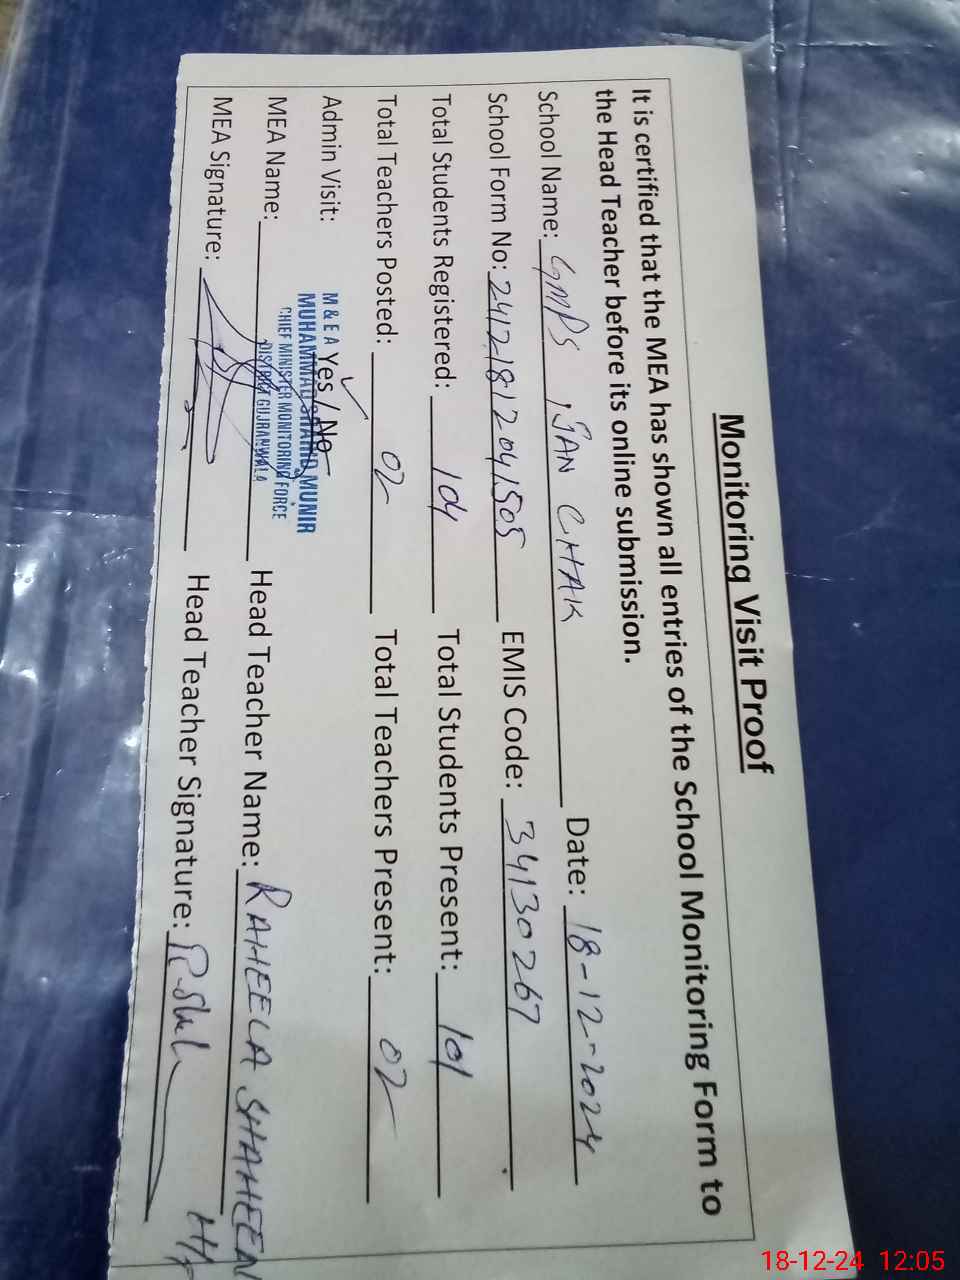 Monitoring Visit Proof
It is certified that the MEA has shown all entries of the School Monitoring Form to
the Head Teacher before its online submission.
School Name: GMPS JAN CHAK Date: 18-12-2024
School Form No: 24121812041505 EMIS Code: 34130267
Total Students Registered: 104 Total Students Present: 101
Total Teachers Posted: 02 Total Teachers Present: 02
Admin Visit: Yes / No
M & E A
MUHAMMAD SHAHID MUNIR
CHIEF MINISTER MONITORING FORCE
DISTRICT GUJRANWALA
MEA Name: Head Teacher Name: RAHEELA SHAHEEN
MEA Signature: Head Teacher Signature:
18-12-24 12:05